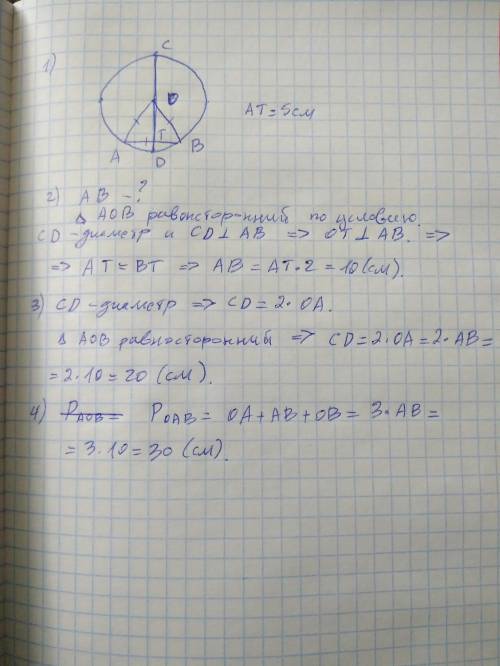 1)
C
O
AT = 5см
T
A
B
D
2) AB - ?
Δ AOB равностор-нний по условию.
CD - диаметр и CD ⊥ AB => OT ⊥ AB. =>
=> AT = BT => AB = AT · 2 = 10 (см).
3) CD - диаметр => CD = 2 · OA.
Δ AOB равносторонний => CD = 2 · OA = 2 · AB =
= 2 · 10 = 20 (см).
4) P AOB = P OAB = OA + AB + OB = 3 · AB =
= 3 · 10 = 30 (см).